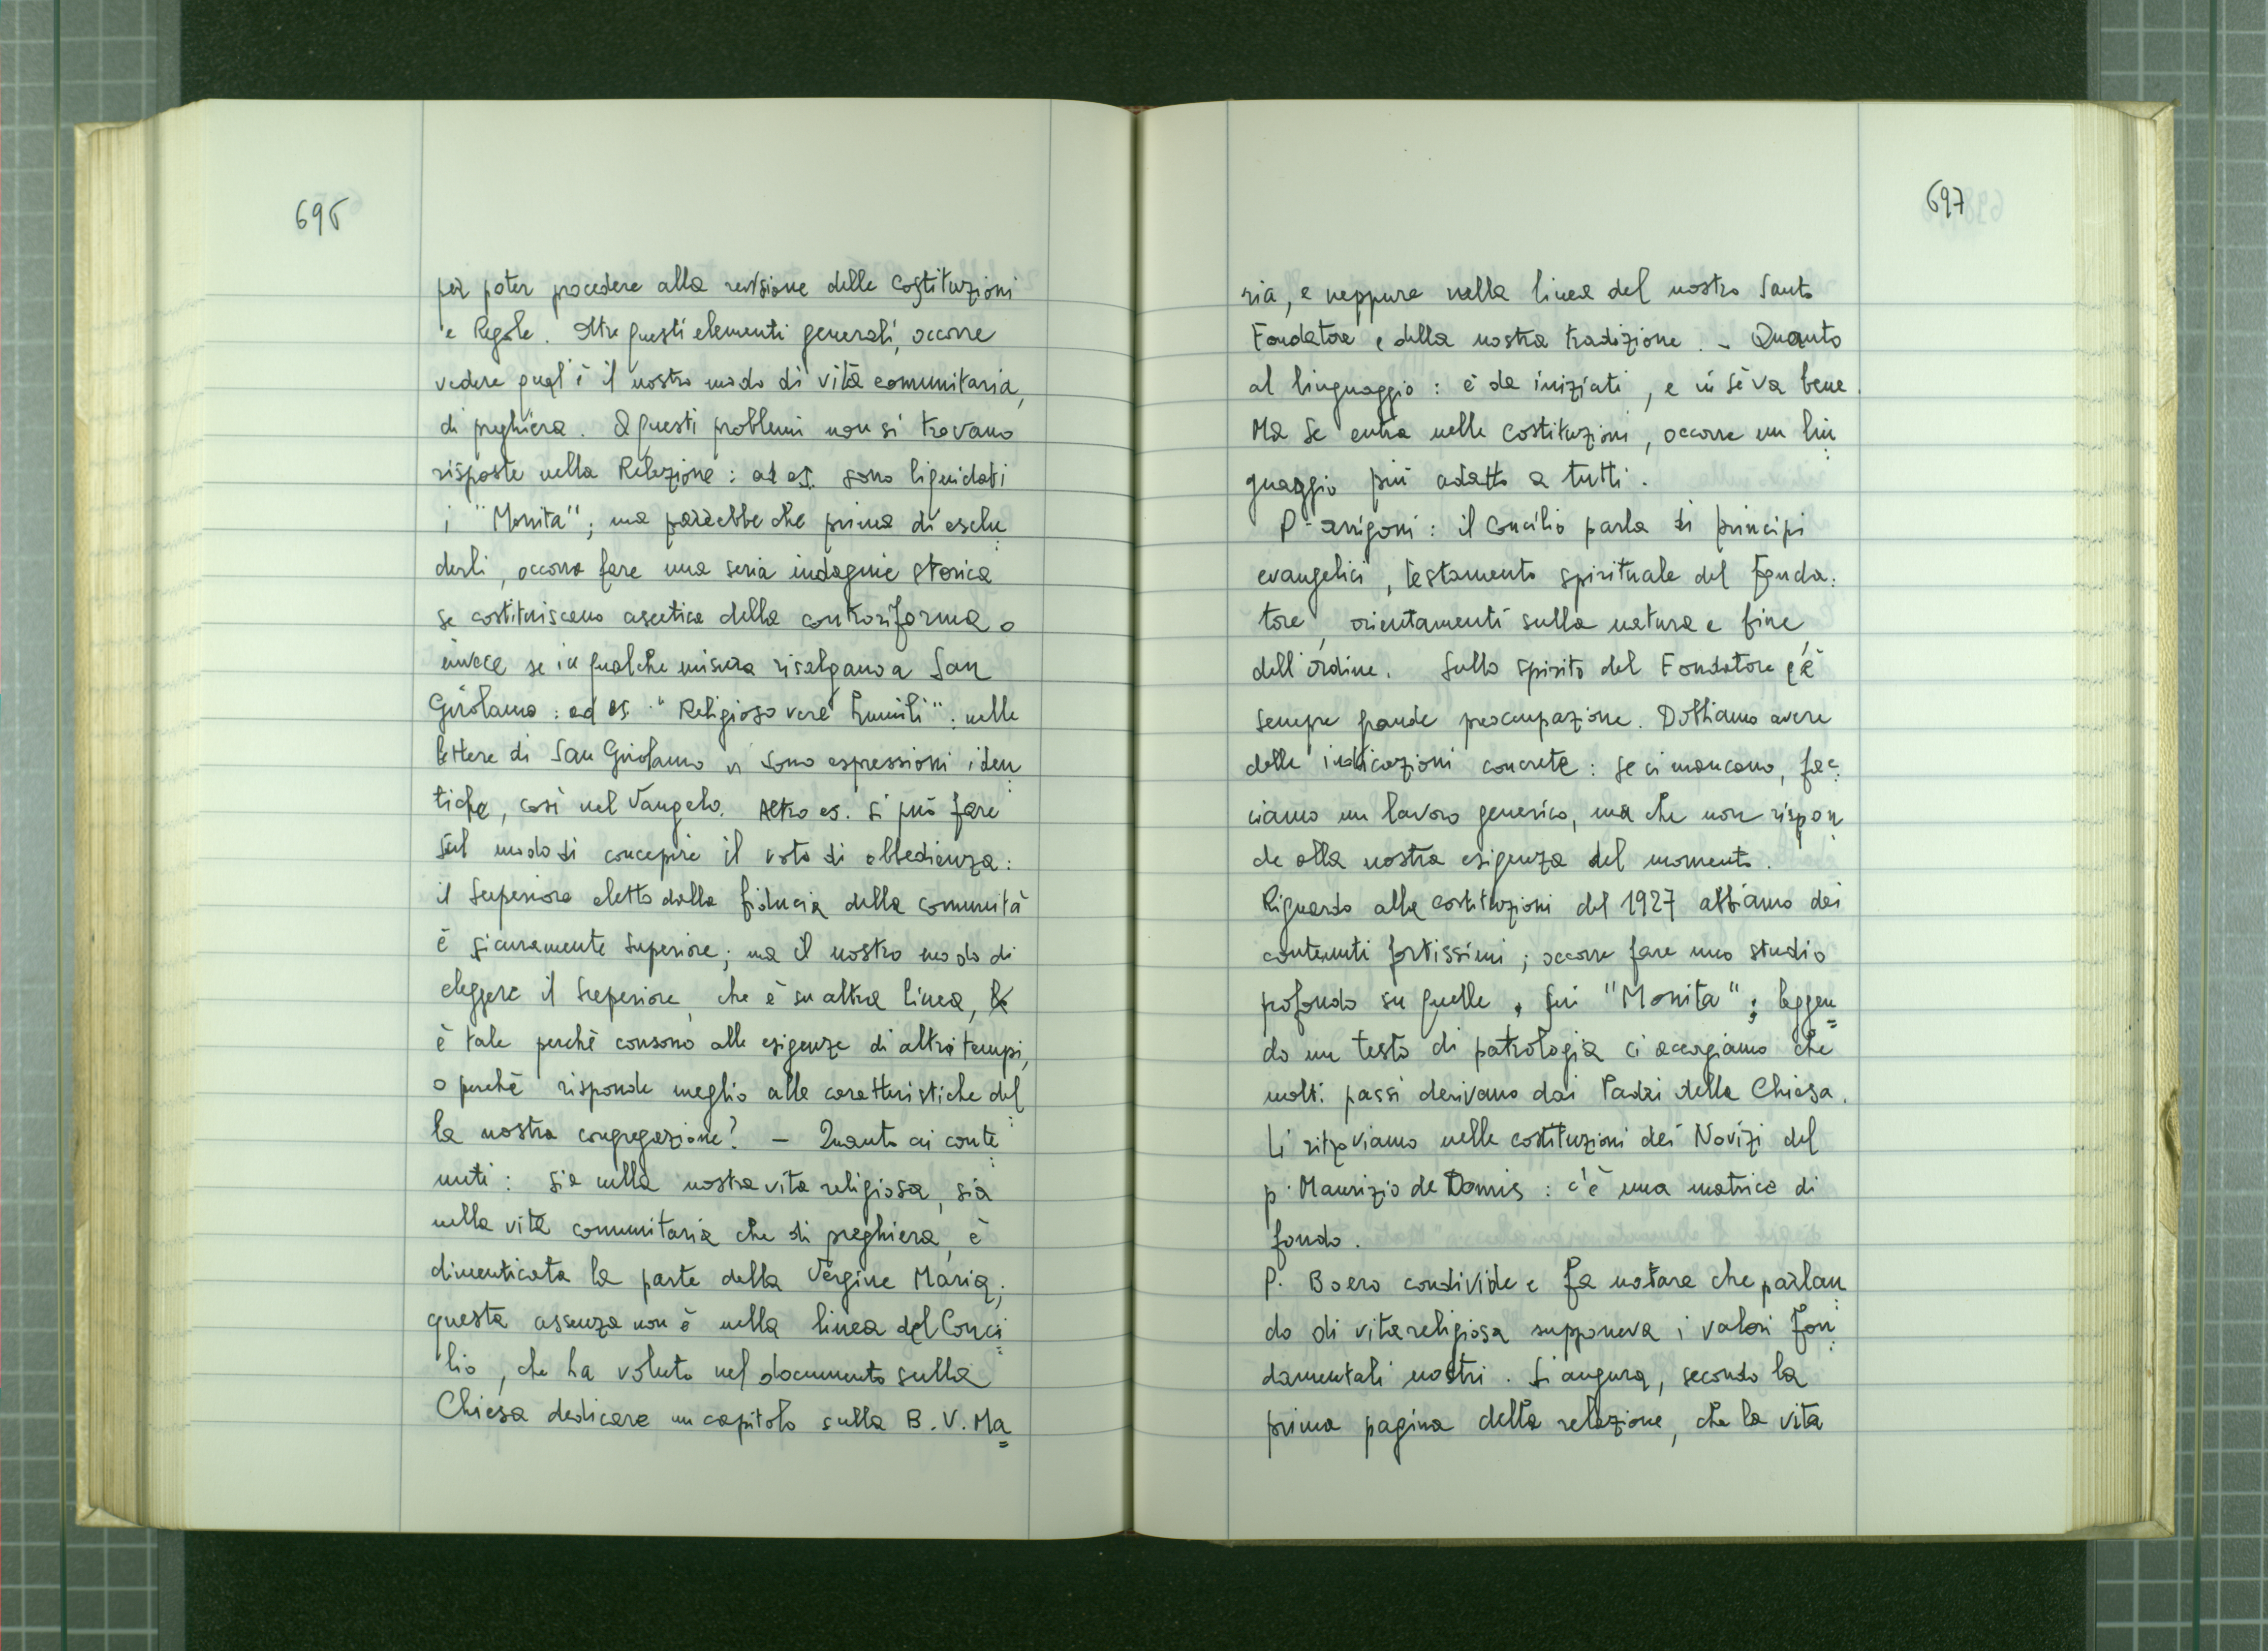 696
per poter procedere alla revisione delle Costituzioni
e Regole. Oltre questi elementi generali, occorre
vedere qual'è il nostro modo di vita comunitaria,
di preghiera. A questi problemi non si trovano
risposte nella Relazione: ad es. sono liquidati
i "Monita"; ma parrebbe che prima di esclu
derli, occorra fare una seria indagine storica
se costituiscano ascetica della controriforma o
invece se in qualche misura risalgano a San
Girolamo: ad es. "Religioso vere humili": nelle
lettere di San Girolamo vi sono espressioni iden
tiche, così nel Vangelo. Altro es. si può fare
sul modo di concepire il voto di obbedienza:
il Superiore eletto dalla fiducia della comunità
è sicuramente Superiore; ma il nostro modo di
eleggere il Superiore, che è su altra linea,
è tale perchè consono alle esigenze di altri tempi,
o perchè risponde meglio alle caratteristiche del
la nostra congregazione? - Quanto ai conte
nuti: sia nella nostra vita religiosa, sia
nella vita comunitaria che di preghiera, è
dimenticata la parte della Vergine Maria;
questa assenza non è nella linea del Conci
lio, che ha voluto nel documento sulla
Chiesa dedicare un capitolo sulla B. V. Ma=
697
ria, e neppure nella linea del nostro Santo
Fondatore e della nostra tradizione. - Quanto
al linguaggio: è da iniziati, e in sè va bene.
Ma se entra nelle Costituzioni, occorre un lin
guaggio più adatto a tutti.
P. Arrigoni: il Concilio parla di principi
evangelici, testamento spirituale del Fonda:
tore, orientamenti sulla natura e fine
dell'ordine. Sullo spirito del Fondatore c'è
sempre grande preoccupazione. Dobbiamo avere
delle indicazioni concrete: se ci mancano, fac
ciamo un lavoro generico, ma che non rispon
de alla nostra esigenza del momento.
Riguardo alle costituzioni del 1927 abbiamo dei
contenuti fortissimi; occorre fare uno studio
profondo su quelle, sui "Monita"; leggen=
do un testo di patrologia ci accorgiamo che
molti passi derivano dai Padri della Chiesa.
Li ritroviamo nelle costituzioni dei Novizi del
p. Maurizio de Domis: c'è una matrice di
fondo.
P. Boero condivide e fa notare che parlan
do di vita religiosa supponeva i valori fon
damentali nostri. Si augura, secondo la
prima pagina della relazione, che la vita